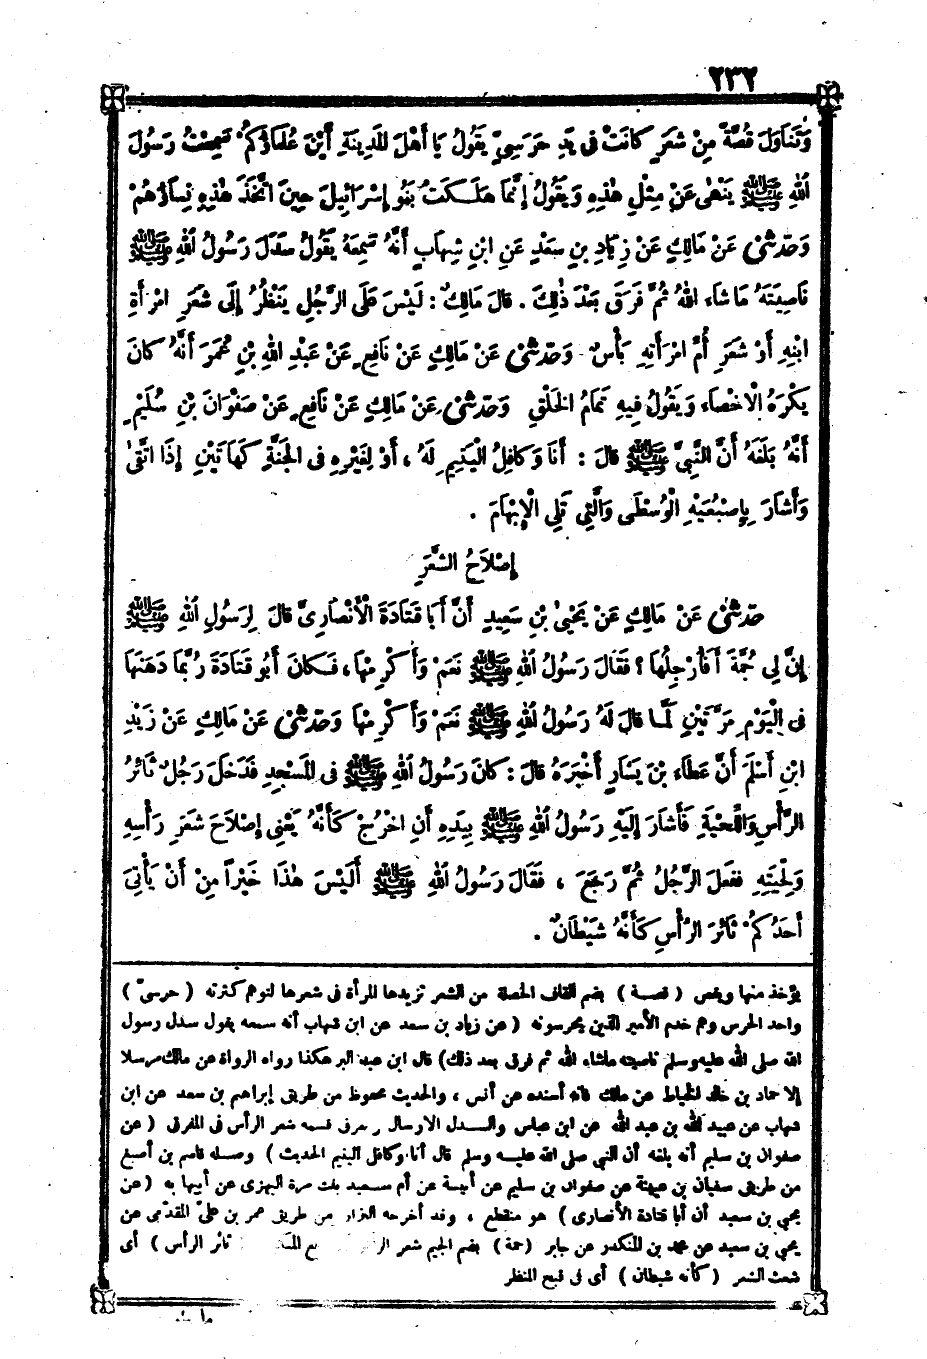 ٢٣٢
وَتَنَاوَلَ قُصَّةً مِنْ شَعَرٍ كَانَتْ فِى يَدِ حَرَسِىٍّ يَقُولُ يَا أَهْلَ المَدِينَةِ أَيْنَ عُلَمَاؤُكُمْ سَمِعْتُ رَسُولَ
اللهِ ﷺ يَنْهَى عَنْ مِثْلِ هٰذِهِ وَيَقُولُ إِنَّمَا هَلَكَتْ بَنُو إِسْرَائِيلَ حِينَ اتَّخَذَ هٰذِهِ نِسَاؤُهُمْ
وَحَدَّثَنِى عَنْ مَالِكٍ عَنْ زِيَادِ بنِ سَعْدٍ عَنِ ابْنِ شِهَابٍ أَنَّهُ سَمِعَهُ يَقُولُ سَدَلَ رَسُولُ اللهِ ﷺ
نَاصِيَتَهُ مَا شَاءَ اللهُ ثُمَّ فَرَقَ بَعْدَ ذٰلِكَ . قَالَ مَالِكٌ : لَيْسَ عَلَى الرَّجُلِ يَنْظُرُ إِلَى شَعَرِ امْرَأَةِ
ابْنِهِ أَوْ شَعَرِ أُمِّ امْرَأَتِهِ بَأْسٌ وَحَدَّثَنِى عَنْ مَالِكٍ عَنْ نَافِعٍ عَنْ عَبْدِ اللهِ بْنِ عُمَرَ أَنَّهُ كَانَ
يَكْرَهُ الْإِخْصَاءَ وَيَقُولُ فِيهِ تَمَامُ الخَلْقِ وَحَدَّثَنِى عَنْ مَالِكٍ عَنْ نَافِعٍ عَنْ صَفْوَانَ بْنِ سُلَيْمٍ
أَنَّهُ بَلَغَهُ أَنَّ النَّبِىَّ ﷺ قَالَ : أَنَا وَكَافِلُ الْيَتِيمِ لَهُ ، أَوْ لِغَيْرِهِ فِى الجَنَّةِ كَهَاتَيْنِ إِذَا اتَّقَى
وَأَشَارَ بِإِصْبُعَيْهِ الْوُسْطَى وَالَّتِى تَلِى الْإِبْهَامَ .
إِصْلَاحُ الشَّعَرِ
حَدَّثَنِى عَنْ مَالِكٍ عَنْ يَحْيَى بْنِ سَعِيدٍ أَنَّ أَبَا قَتَادَةَ الْأَنْصَارِىَّ قَالَ لِرَسُولِ اللهِ ﷺ
إِنَّ لِى جُمَّةً أَفَأُرَجِّلُهَا ؟ فَقَالَ رَسُولُ اللهِ ﷺ نَعَمْ وَأَكْرِمْهَا ، فَكَانَ أَبُو قَتَادَةَ رُبَّمَا دَهَنَهَا
فِى الْيَوْمِ مَرَّتَيْنِ لَمَّا قَالَ لَهُ رَسُولُ اللهِ ﷺ نَعَمْ وَأَكْرِمْهَا وَحَدَّثَنِى عَنْ مَالِكٍ عَنْ زَيْدِ
ابْنِ أَسْلَمَ أَنَّ عَطَاءَ بْنَ يَسَارٍ أَخْبَرَهُ قَالَ : كَانَ رَسُولُ اللهِ ﷺ فِى المَسْجِدِ فَدَخَلَ رَجُلٌ ثَائِرُ
الرَّأْسِ وَاللِّحْيَةِ فَأَشَارَ إِلَيْهِ رَسُولُ اللهِ ﷺ بِيَدِهِ أَنِ اخْرُجْ كَأَنَّهُ يَعْنِى إِصْلَاحَ شَعَرِ رَأْسِهِ
وَلِحْيَتِهِ فَفَعَلَ الرَّجُلُ ثُمَّ رَجَعَ ، فَقَالَ رَسُولُ اللهِ ﷺ أَلَيْسَ هٰذَا خَيْرًا مِنْ أَنْ يَأْتِىَ
أَحَدُكُمْ ثَائِرَ الرَّأْسِ كَأَنَّهُ شَيْطَانٌ .
يؤخذ منها ويقص ( قصة ) بضم القاف الخصلة من الشعر تزيدها المرأة فى شعرها لتوهم كثرته ( حرسىّ )
واحد الحرس وهم خدم الأمير الذين يحرسونه ( عن زياد بن سعد عن ابن شهاب أنه سمعه يقول سدل رسول
الله صلى الله عليه وسلم ناصيته ماشاء الله ثم فرق بعد ذلك ) قال ابن عبد البر هكذا رواه الرواة عن مالك مرسلا
إلا حماد بن خالد الخياط عن مالك فانه أسنده عن أنس ، والحديث محفوظ من طريق إبراهم بن سعد عن ابن
شهاب عن عبيد الله بن عبد الله عن ابن عباس والسدل الارسال وفرق قسمه شعر الرأس فى المفرق ( عن
صفوان بن سليم أنه بلغه أن النبى صلى الله عليه وسلم قال أنا وكافل اليتيم الحديث ) وصله قاسم بن أصبغ
من طريق سفيان بن عيينة عن صفوان بن سليم عن أنيسة عن أم سعيد بنت مرة البهزى عن أبيها به ( عن
يحيى بن سعيد أن أبا قتادة الأنصارى ) هو منقطع ، وقد أخرجه البزار من طريق عمر بن علىّ المقدّمى عن
يحيى بن سعيد عن محمد بن المنكدر عن جابر ( جمة ) بضم الجيم شعر ثائر الرأس ) أى
شعث الشعر ( كأنه شيطان ) أى فى قبح المنظر